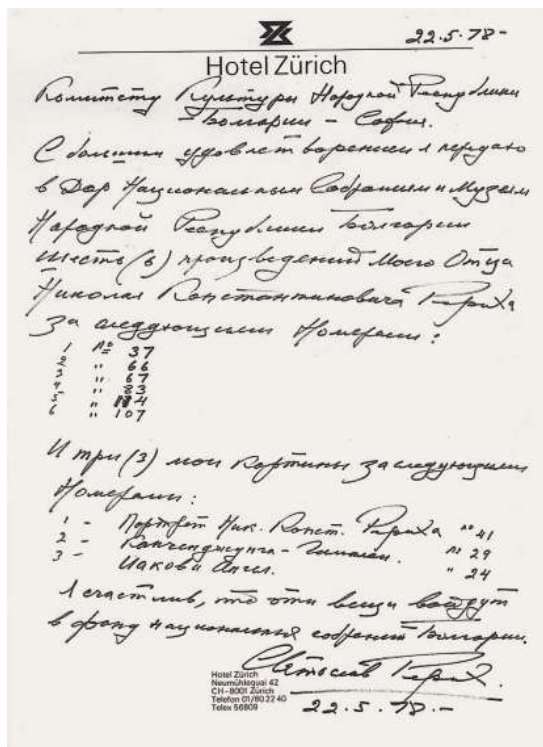 22.5.78-
Hotel Zürich
Комитету Культуры Народной Республики
- Болгарии - София.
С большим удовлетворением я передаю
в Дар Национальным Собраниям и Музеям
Народной Республики Болгарии
шесть (6) произведений моего Отца
Николая Константиновича Рериха
За следующими Номерами:
1 № 37
2 " 66
3 " 67
4 " 83
5. " 4
6 " 107
И три (3) мои картины за следующими
Номерами:
1 - Портрет Ник. Конст. Рериха № 41
2 - Канченджунга - Гималаи. № 29
3 - Иаков и Ангел. " 24
Я счастлив, что эти вещи войдут
в фонд национальных собраний Болгарии.
Святослав Рерих.
Hotel Zürich
Neumühlequai 42
CH-8001 Zürich
Telefon 01/60 22 40
Telex 56809
22.5.78.-